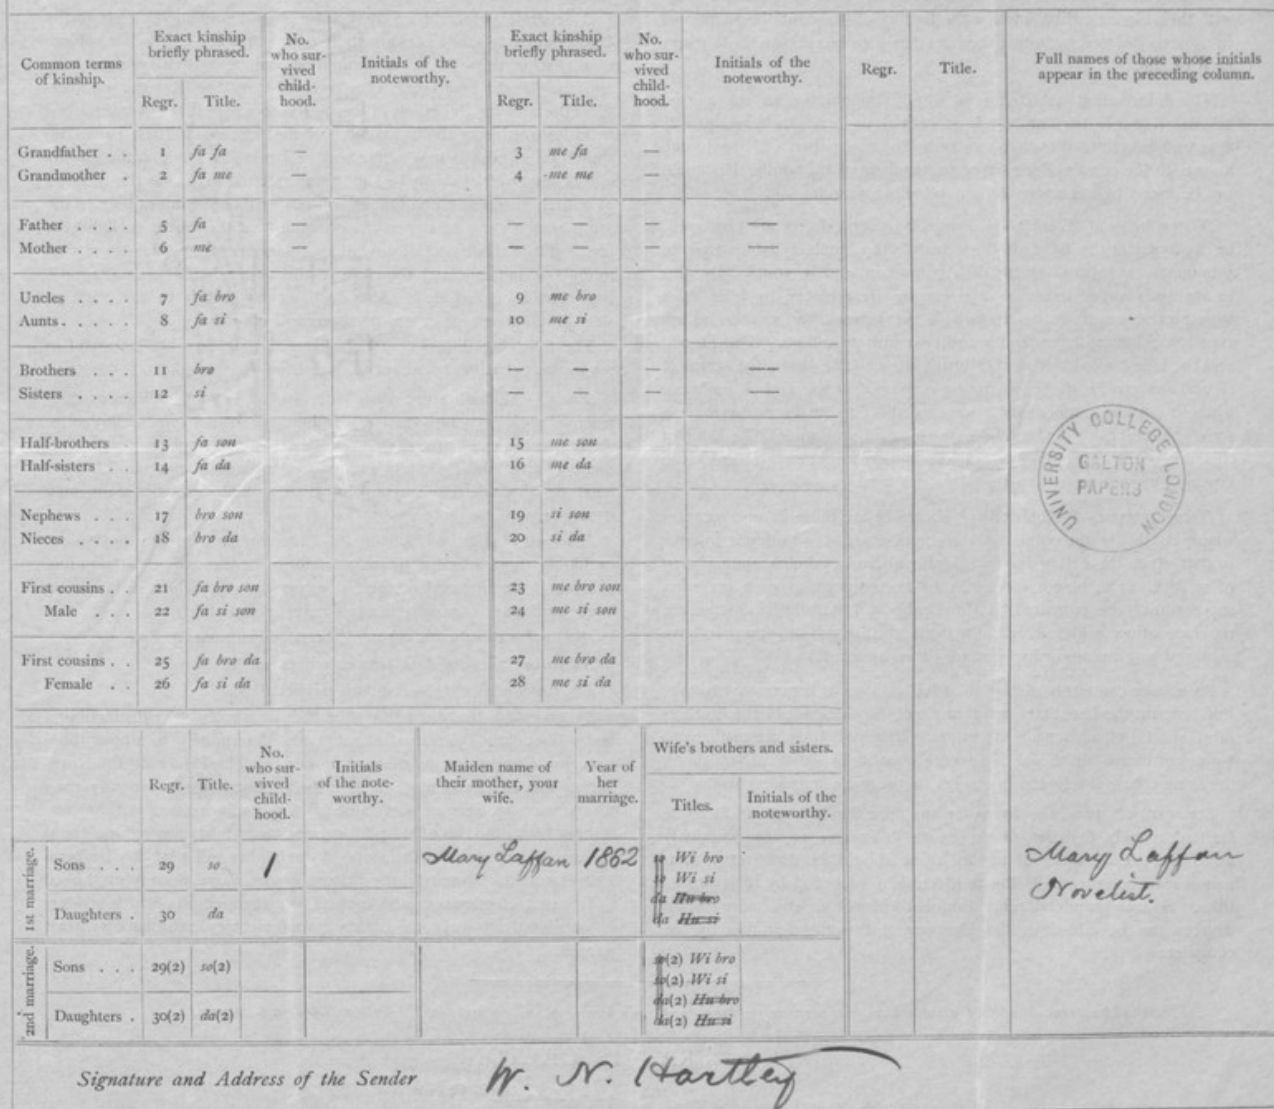 Common terms of kinship. | Exact kinship briefly phrased. | No. who sur-vived child-hood. | Initials of the noteworthy. | Exact kinship briefly phrased. | No. who sur-vived child-hood. | Initials of the noteworthy. | Regr. | Title. | Full names of those whose initials appear in the preceding column.
Regr. | Title. | Regr. | Title.
Grandfather . . 1 fa fa — 3 me fa —
Grandmother . 2 fa me — 4 me me —
Father . . . . 5 fa — — — — —
Mother . . . . 6 me — — — — —
Uncles . . . . 7 fa bro 9 me bro
Aunts . . . . . 8 fa si 10 me si
Brothers . . . 11 bro — — — —
Sisters . . . . 12 si — — — —
Half-brothers . 13 fa son 15 me son
Half-sisters . . 14 fa da 16 me da
Nephews . . . 17 bro son 19 si son
Nieces . . . . 18 bro da 20 si da
First cousins . . 21 fa bro son 23 me bro son
Male . . . 22 fa si son 24 me si son
First cousins . . 25 fa bro da 27 me bro da
Female . . 26 fa si da 28 me si da
UNIVERSITY COLLEGE LONDON
GALTON
PAPERS
Regr. | Title. | No. who sur-vived child-hood. | Initials of the note-worthy. | Maiden name of their mother, your wife. | Year of her marriage. | Wife's brothers and sisters.
Titles. | Initials of the noteworthy.
1st marriage.
Sons . . . 29 so 1 Mary Laffan 1862 so Wi bro Mary Laffan
so Wi si Novelist.
Daughters . 30 da da Hu bro
da Hu si
2nd marriage.
Sons . . . 29(2) so(2) so(2) Wi bro
so(2) Wi si
Daughters . 30(2) da(2) da(2) Hu bro
da(2) Hu si
Signature and Address of the Sender W. N. Hartley